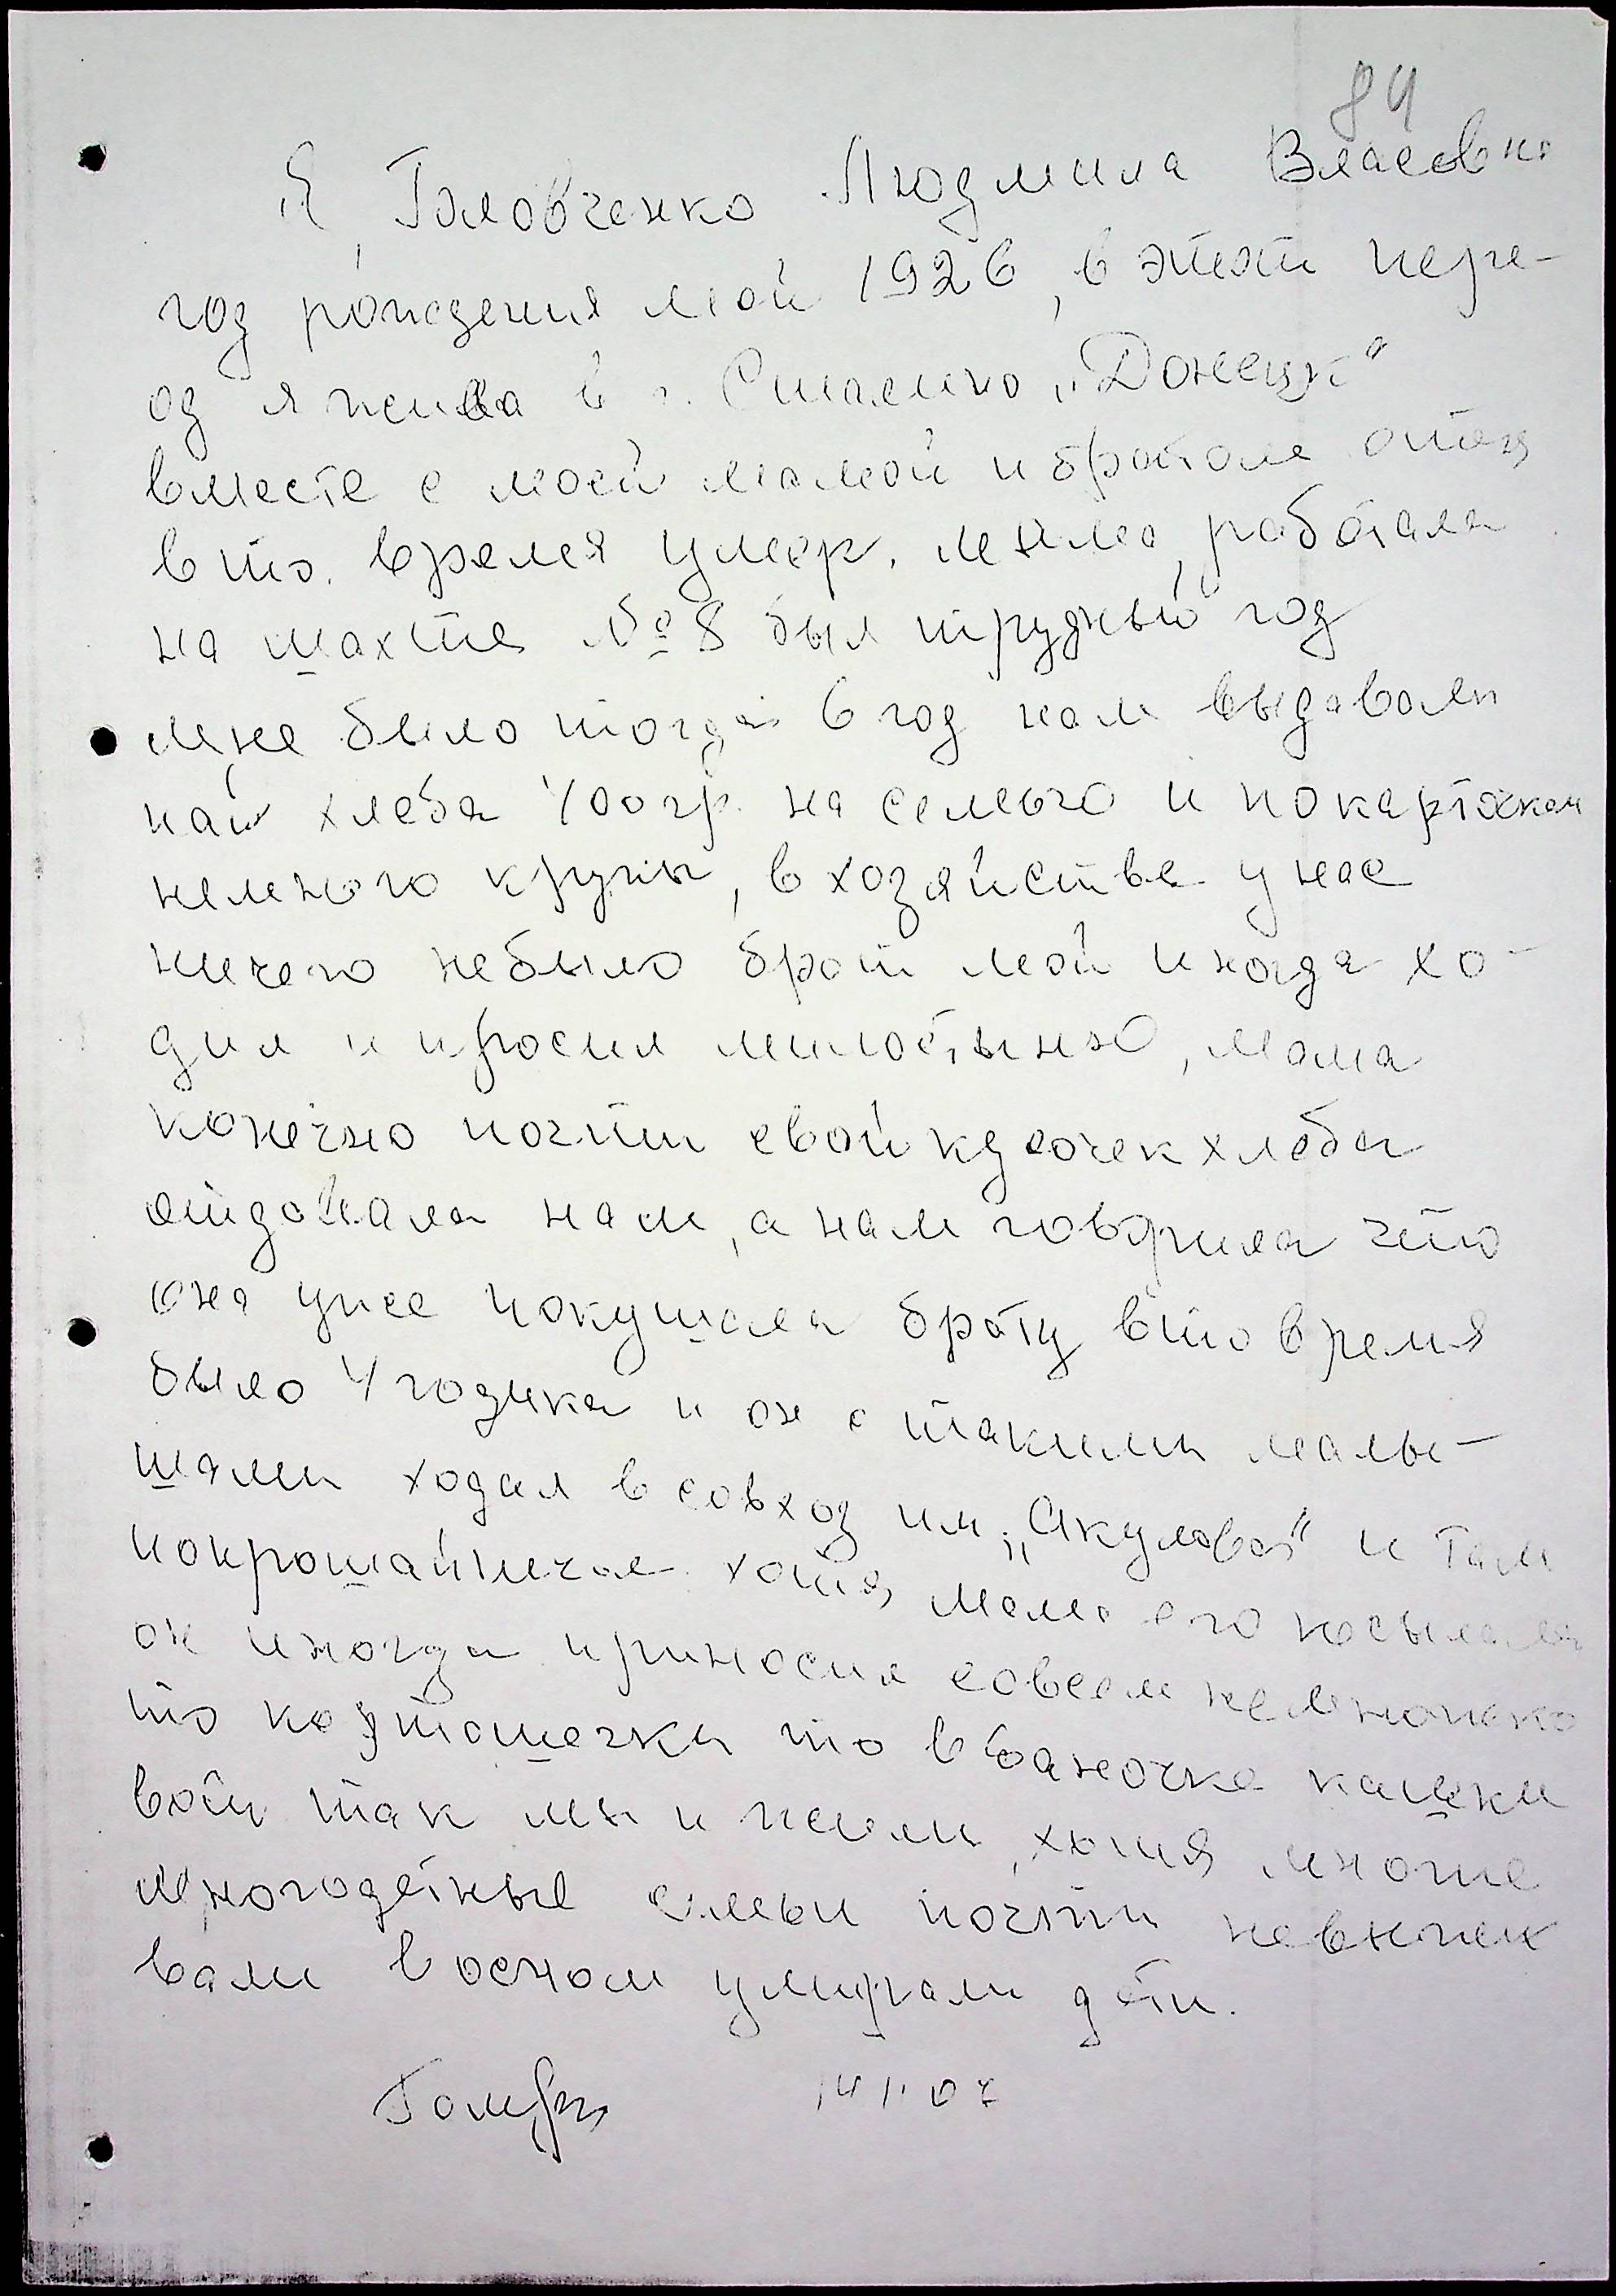 84
Я, Головченко Людмила Власовна
год рождения мой 1926, в этот пери-
од я жила в г. Сталино „Донецк“
вместе с моей мамой и братом отец
в то время умер, мама работала
на шахте № 8 был трудный год
мне было тогда 6 год нам выдавали
пай хлеба 400 гр. на семью и по карточкам
немного крупы, в хозяйстве у нас
ничего небыло брат мой иногда хо-
дил и просил милостыню, мама
конечно почти свой кусочек хлеба
отдавала нам, а нам говорила что
она уже покушала брату в то время
было 4 годика и он с такими малы-
шами ходил в совхоз им. „Акулова“ и там
попрошайничал хотя мама его
он иногда приносил совсем немножко
то картошечки то в баночке кашки
вот так мы и жили, хотя многие
многодетные семьи почти невыжи
вали в осном умирали дети.